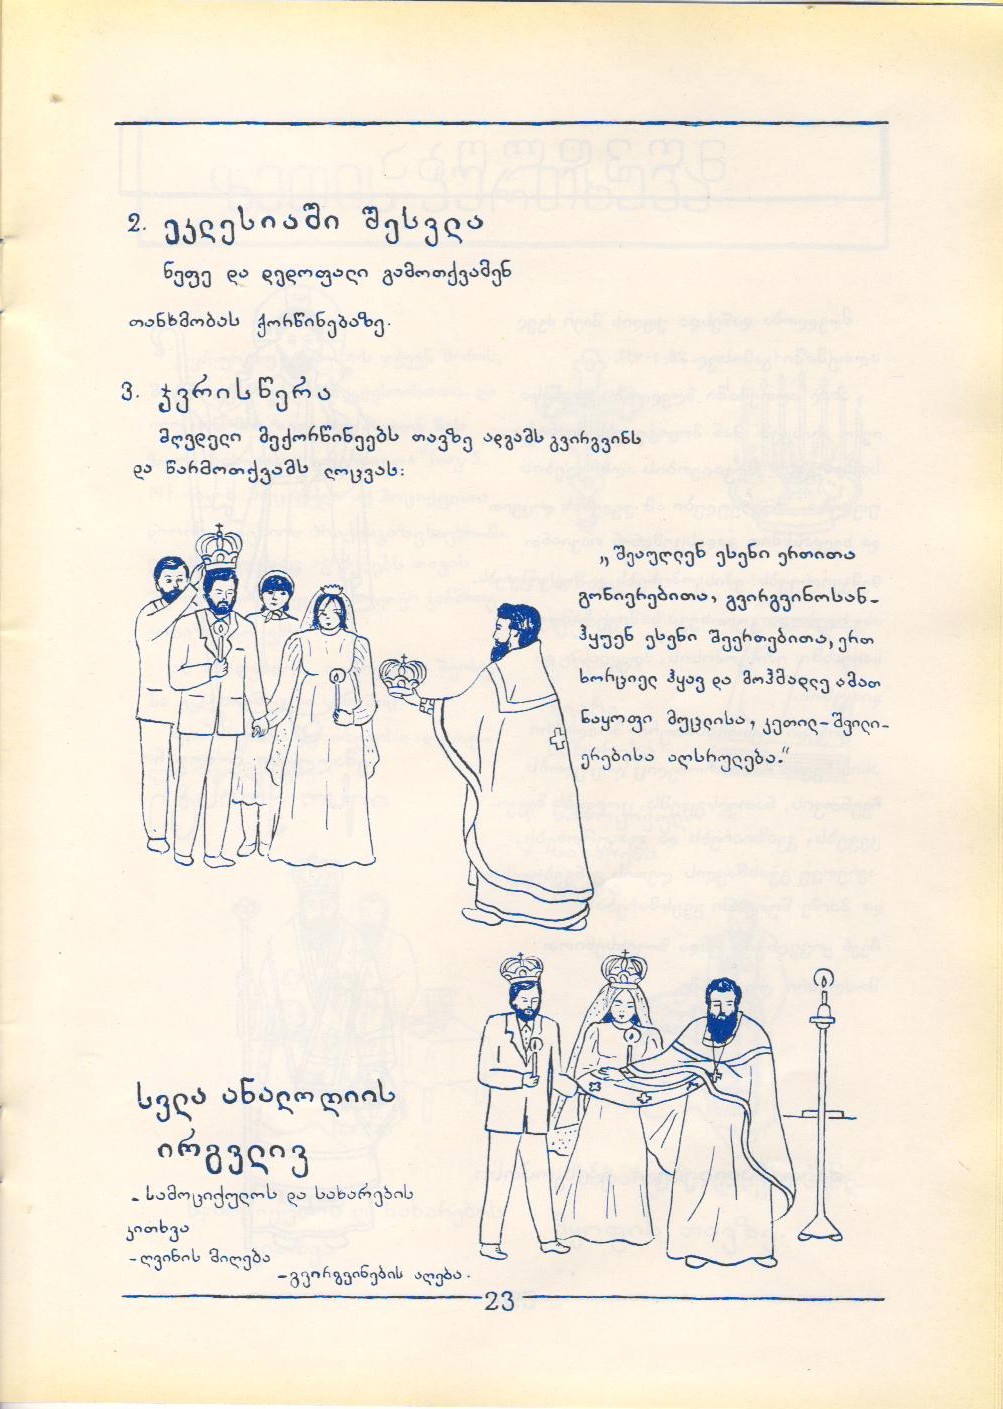 2. ეკლესიაში შესვლა
ნეფე და დედოფალი გამოთქვამენ
თანხმობას ქორწინებაზე.
3. ჯვრისწერა
მღვდელი მექორწინეებს თავზე ადგამს გვირგვინს
და წარმოთქვამს ლოცვას:
„შეაუღლენ ესენი ერთითა
გონიერებითა, გვირგვინოსან-
ჰყუენ ესენი შეერთებითა, ერთ
ხორციელ ჰყავ და მოჰმადლე ამათ
ნაყოფი მუცლისა, კეთილ-შვილი-
ერებისა აღსრულება.“
სვლა ანალოღიის
ირგვლივ
- სამოციქულოს და სახარების
კითხვა
- ღვინის მიღება
- გვირგვინების აღება.
23